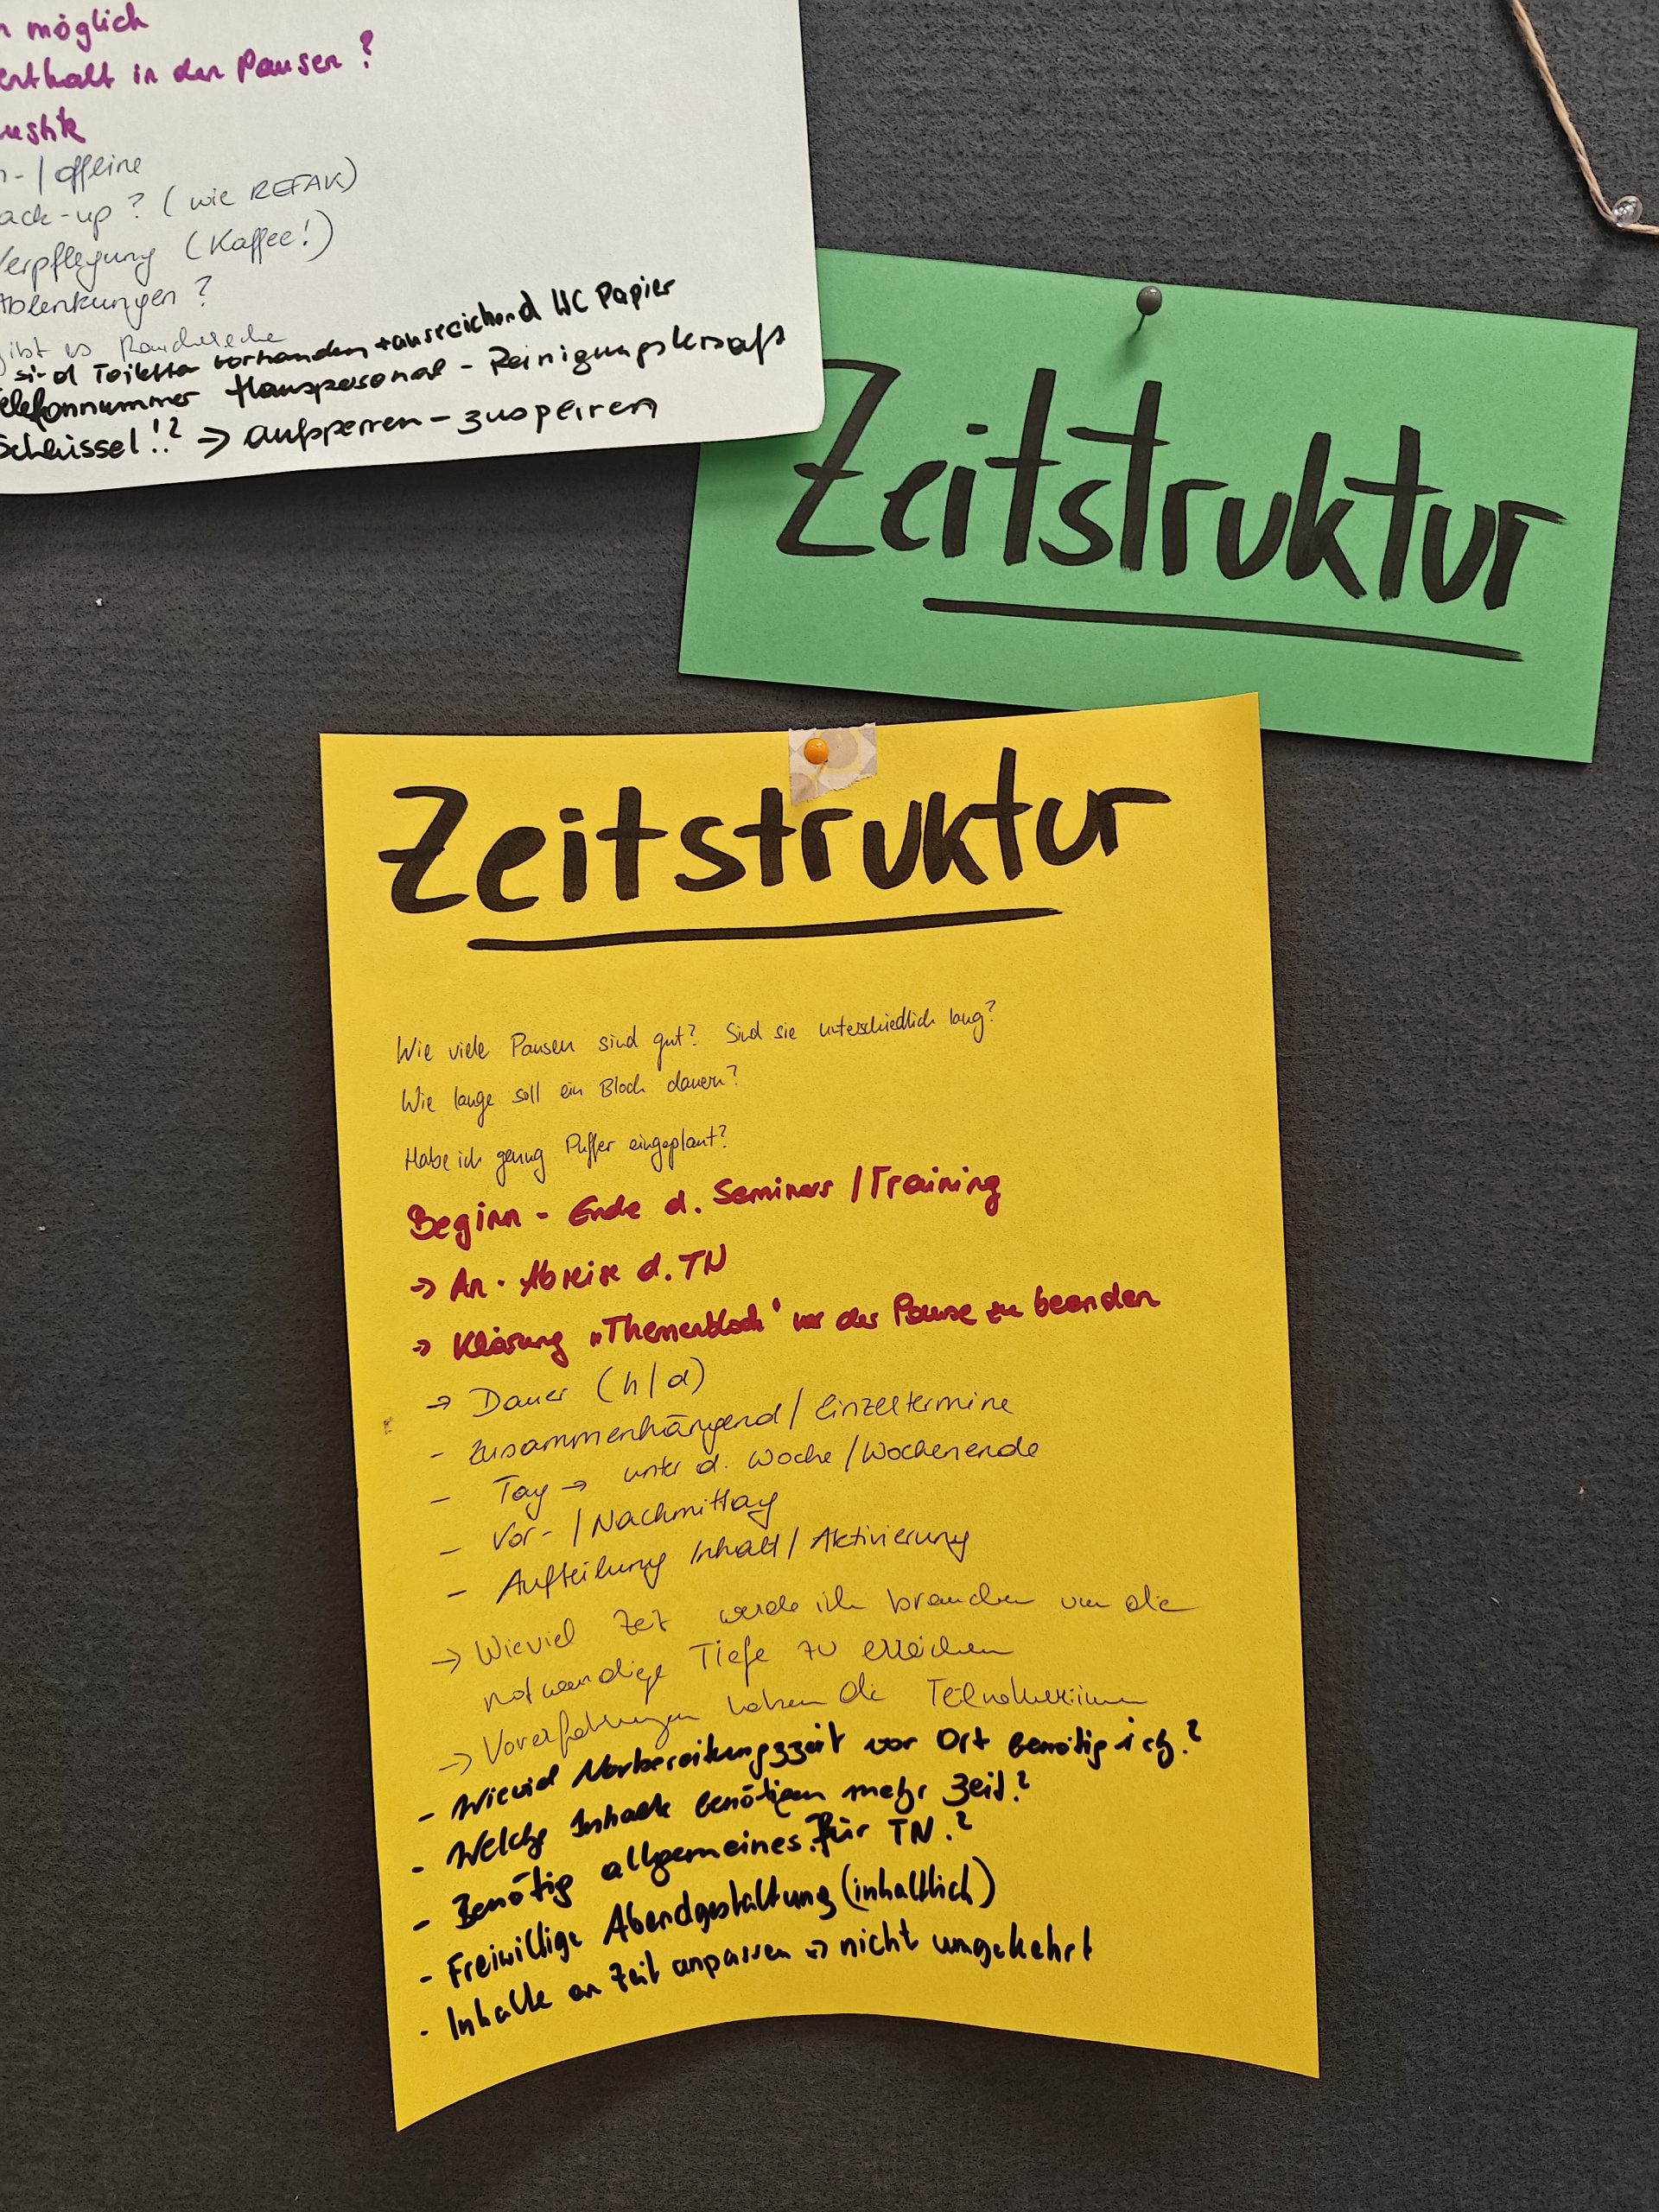 möglich
in den Pausen ?
- / offline
? (wie REFAK)
Verpflegung (Kaffee!)
Ablenkungen ?
gibt es
sind Toiletten vorhanden + ausreichend WC Papier
Telefonnummer Hauspersonal - Reinigungskraft
Schlüssel!? → aufsperren - zusperren
Zeitstruktur
Zeitstruktur
Wie viele Pausen sind gut? Sind sie unterschiedlich lang?
Wie lange soll ein Block dauern?
Habe ich genug Puffer eingeplant?
Beginn - Ende d. Seminars / Training
→ An- Abreise d. TN
→ Klärung „Themenblock" vor der Pause zu beenden
→ Dauer (h/d)
- Zusammenhängend / Einzeltermine
- Tag → unter d. Woche / Wochenende
- Vor- / Nachmittag
- Aufteilung Inhalt / Aktivierung
→ Wieviel Zeit werde ich brauchen um die
notwendige Tiefe zu erreichen
→ Vorerfahrungen haben die
- Wieviel Vorbereitungszeit vor Ort benötig ich?
- Welche Inhalte benötigen mehr Zeit?
- Benötig allgemeines für TN.?
- Freiwillige Abendgestaltung (inhaltlich)
- Inhalte an Zeit anpassen → nicht umgekehrt